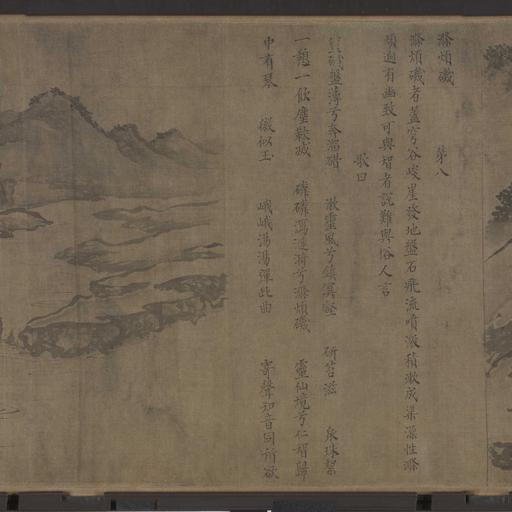 滌煩磯 第八
滌煩磯者蓋穹谷峻崖發地盤石飛流噴激積漱成渠澡性滌
煩迥有幽致可與智者說難與俗人言
歌曰
靈磯盤薄兮奔溜錯 漱靈風兮鎮冥壑 研苔滋 泉珠絜
一憩一飲塵勞滅 磷磷瀉漣漪兮滌煩磯 靈仙境兮仁智歸
中有琴 徽似玉 峨峨湯湯彈此曲 寄聲知音同所欲